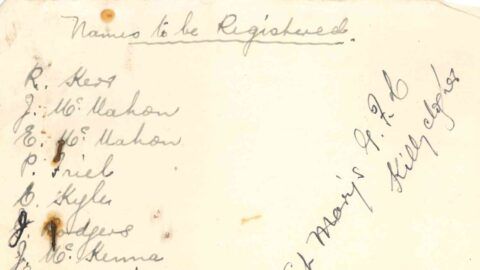 Names to be Registered.
R. Kerr
J. McMahon
E. McMahon
P. Friel
C. Kyle
Rodgers
J. McKenna
St Marys G.F.C
Killyclogher